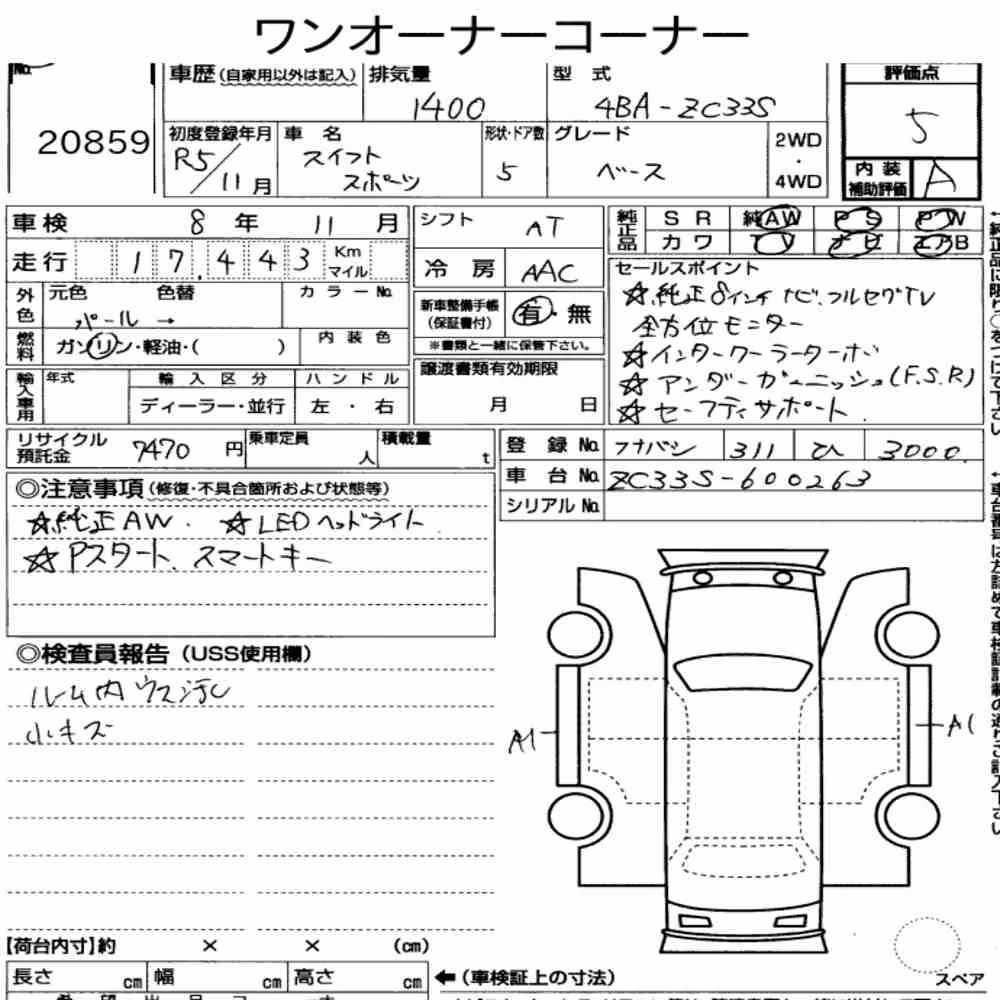 ワンオーナーコーナー
No.
20859
車歴(自家用以外は記入) 排気量 型式 評価点
1400 4BA-ZC33S 5
初度登録年月 車名 形状・ドア数 グレード 2WD・4WD
R5/11月 スイフトスポーツ 5 ベース
内装補助評価 A
車検 8年 11月
走行 17,443 Km マイル
シフト AT
冷房 AAC
純正品 SR 純AW PS PW
カワ TV ナビ エアB
外色 元色 色替 カラーNo.
パール →
燃料 ガソリン・軽油・( ) 内装色
新車整備手帳(保証書付) 有・無
※書類と一緒に保管下さい。
輸入車用 年式 輸入区分 ハンドル
ディーラー・並行 左・右
譲渡書類有効期限
月 日
セールスポイント
☆純正8インチナビ.フルセグTV
全方位モニター
☆インタークーラーターボ
☆アンダーガーニッシュ(F.S.R)
☆セーフティサポート
リサイクル預託金 7470円 乗車定員 人 積載量 t
登録No. フナバシ 311 ひ 3000
車台No. ZC33S-600263
シリアルNo.
◎注意事項(修復・不具合箇所および状態等)
☆純正AW. ☆LEDヘッドライト
☆Pスタート、スマートキー
◎検査員報告(USS使用欄)
ルーム内ウス汚レ
小キズ
A1
A1
【荷台内寸】約 × × (cm)
長さ cm 幅 cm 高さ cm
←(車検証上の寸法)
スペア